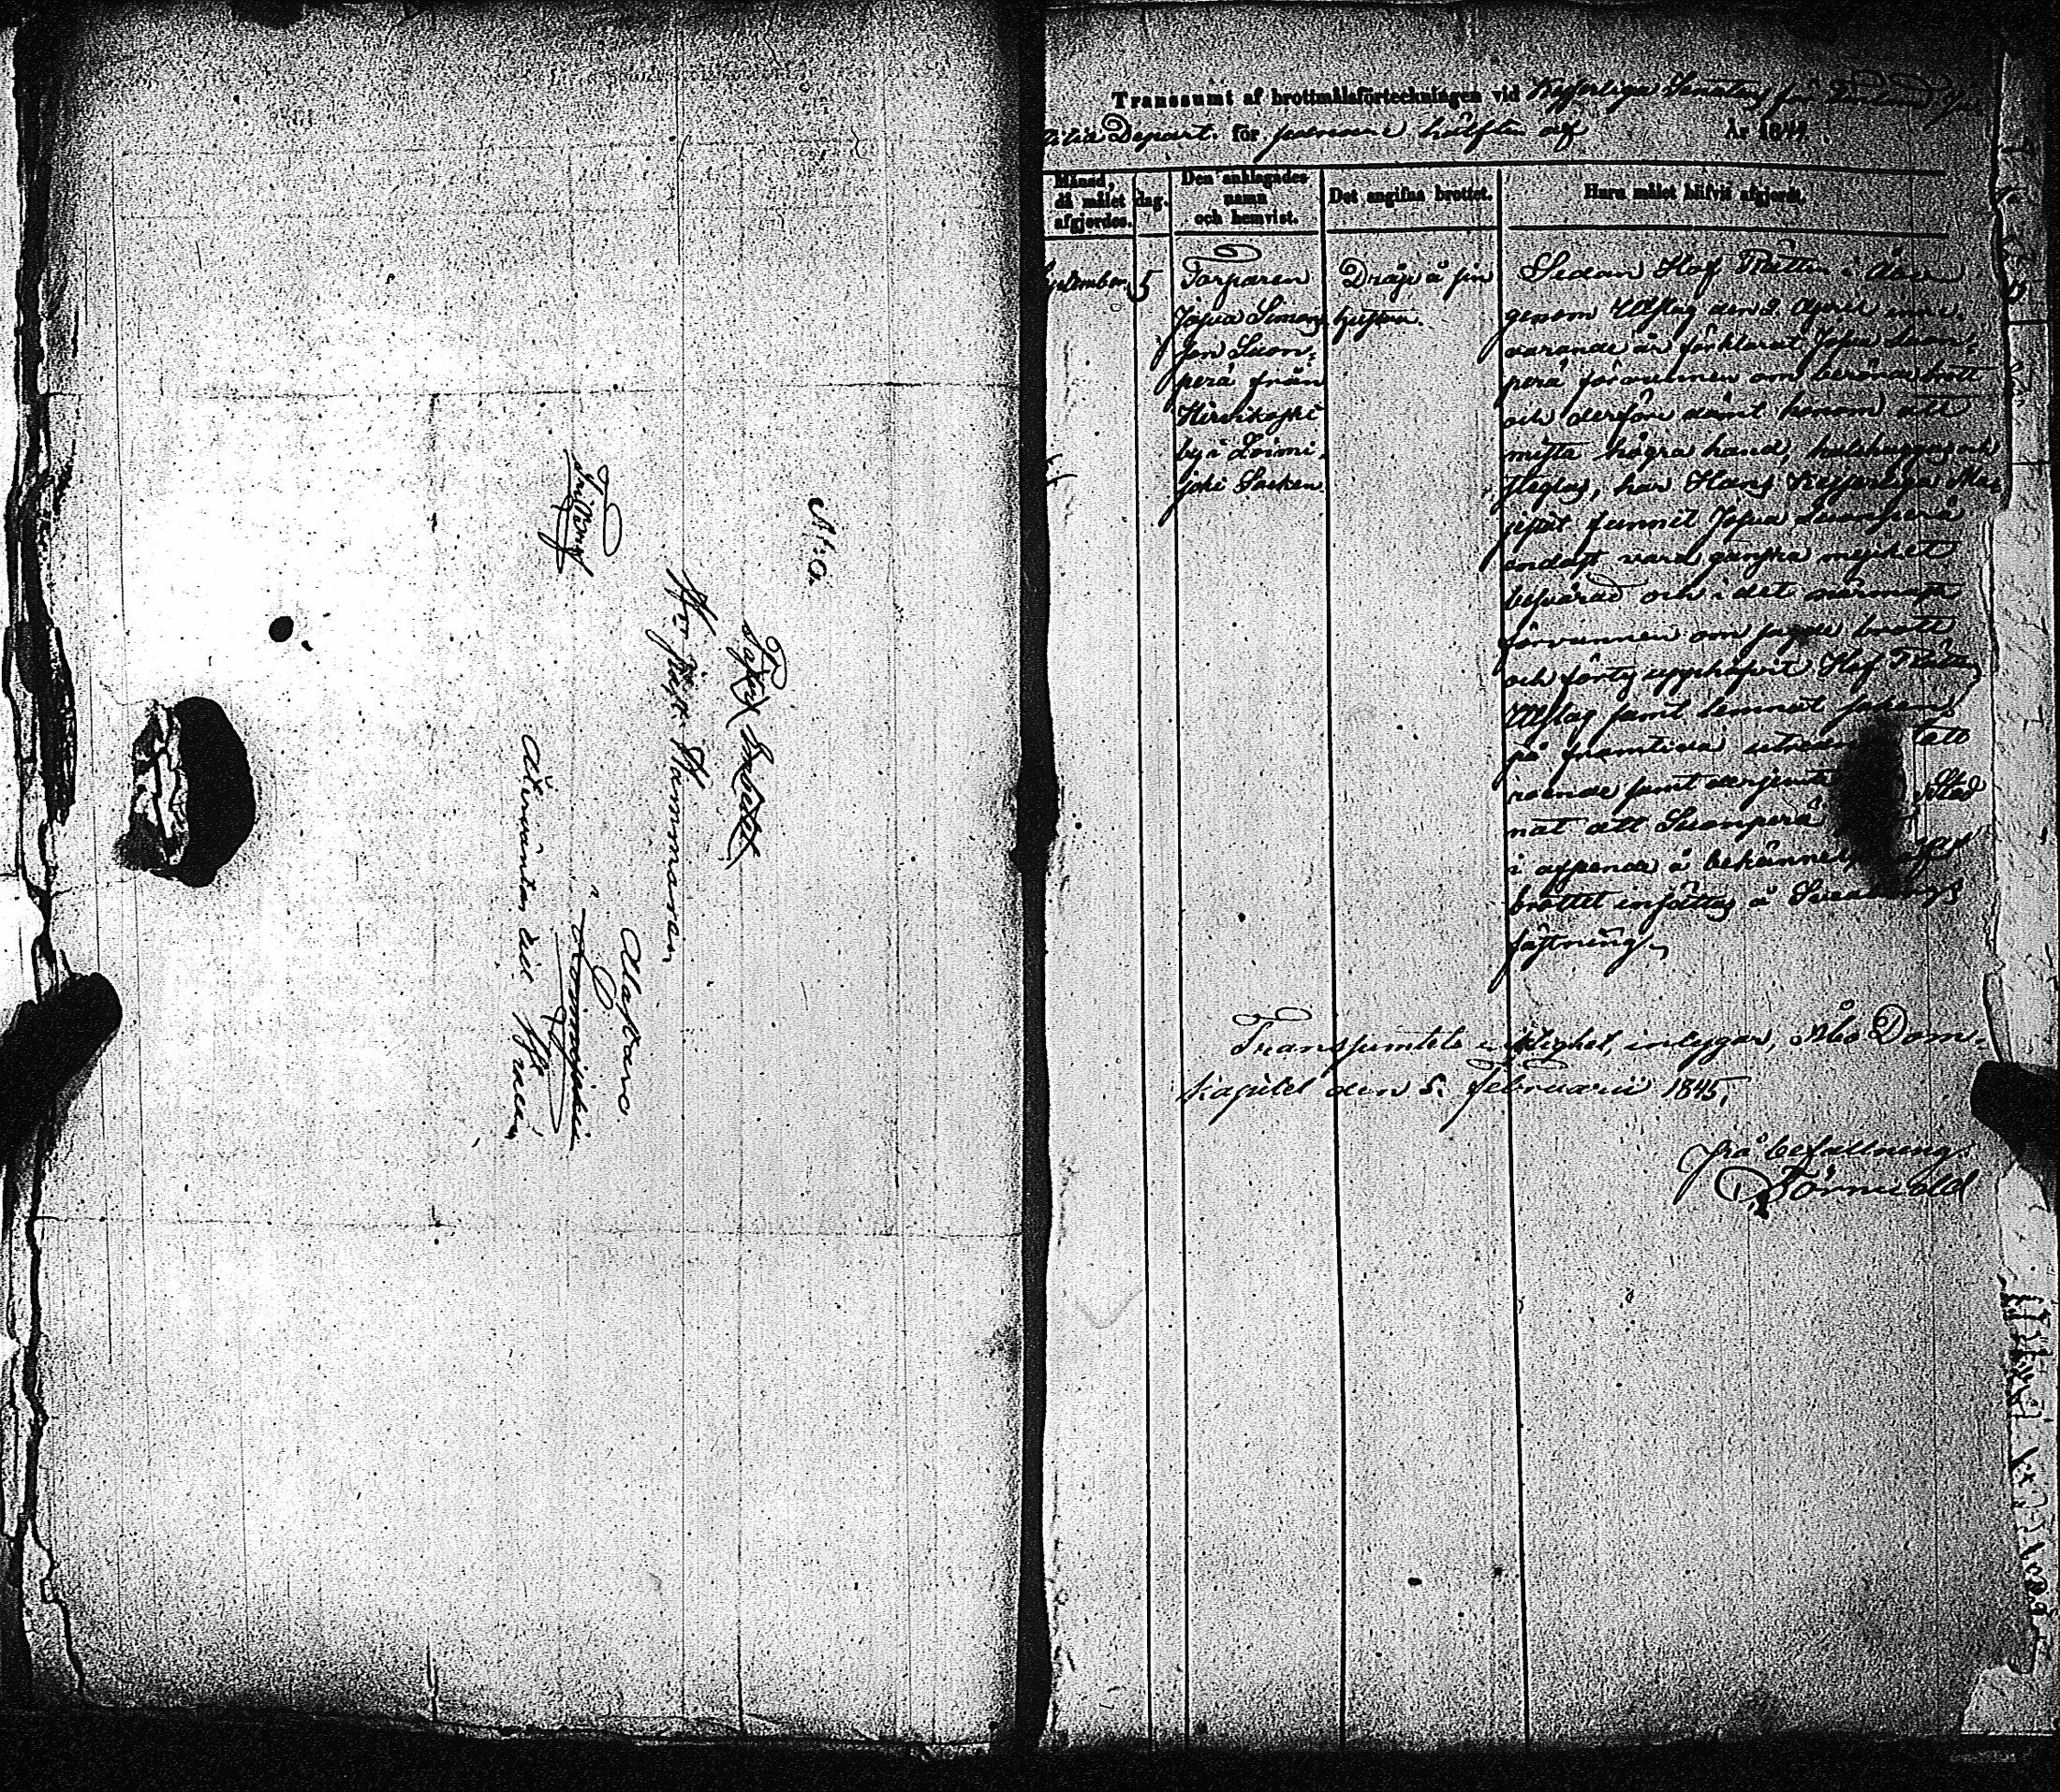 N:o.
Herr Häst. Hammaren
Alastaro
Loimijoki
Återväntas till
Transsumt af brottmålsförteckningen vid Kejserliga Senatens för Finland Ju
stitiæ Depart. för sednare hälften af År 1844.
Månad, då målet afgjordes.
dag.
Den anklagades namn och hemvist.
Det angifna brottet.
Huru målet blifvit afgjordt.
September
5
Torparen
Josua Simons
son Suon-
perä från
Hirvikoski
by i Loimi-
joki Socken.
Dråp å sin
hustru.
Sedan Hof Rätten i Åbo
genom Utslag den 2. April inne-
varande år förklarat Josua Suon-
perä förvunnen om berörde brott
och derföre dömt honom att
mista högra hand, halshuggas och
steglas, har Hans Kejserliga Ma-
jestät funnit Josua Suonperä
endast vara ganska mycket
besvärad och i det närmaste
förvunnen om sagde brott
och förty upphäfvit Hof Rättens
Utslag samt lemnat saken
på framtiden
roende samt derjemte
nat att Suonperä
i afseende å bekännelse
brottet insättas å Sveaborgs
fästning.
Transsumtets riktighet, intygar, Åbo Dom-
kapitel den 5. Februarii 1845.
På befallning:
Törnudd